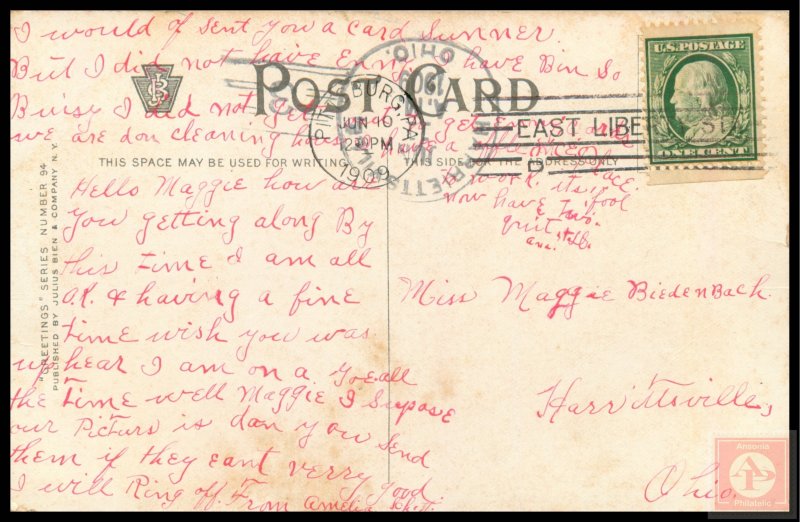 I would of sent you a card sunner.
But I did not have Enny & have Bin So
Buisy I did not get
we are don cleaning house & have a
place
to work its
now have I fool
quit
POST CARD
THIS SPACE MAY BE USED FOR WRITING
THIS SIDE FOR THE ADDRESS ONLY
PITTSBURG, PA.
JUN 10
PM
1909
EAST LIBE
OHIO
U.S. POSTAGE
ONE CENT
"GREETINGS" SERIES NUMBER 94
PUBLISHED BY JULIUS BIEN & COMPANY N. Y.
Hello Maggie how are
You getting along By
this time I am all
O.K. & having a fine
time wish you was
up hear I am on a go all
the time well Maggie I Supose
our Picturs is don you send
them if they eant verry good.
I will Ring off. From Amelia
Miss Maggie Biedenbach.
Harrittsville,
Ohio.
Ansonia
Philatelic